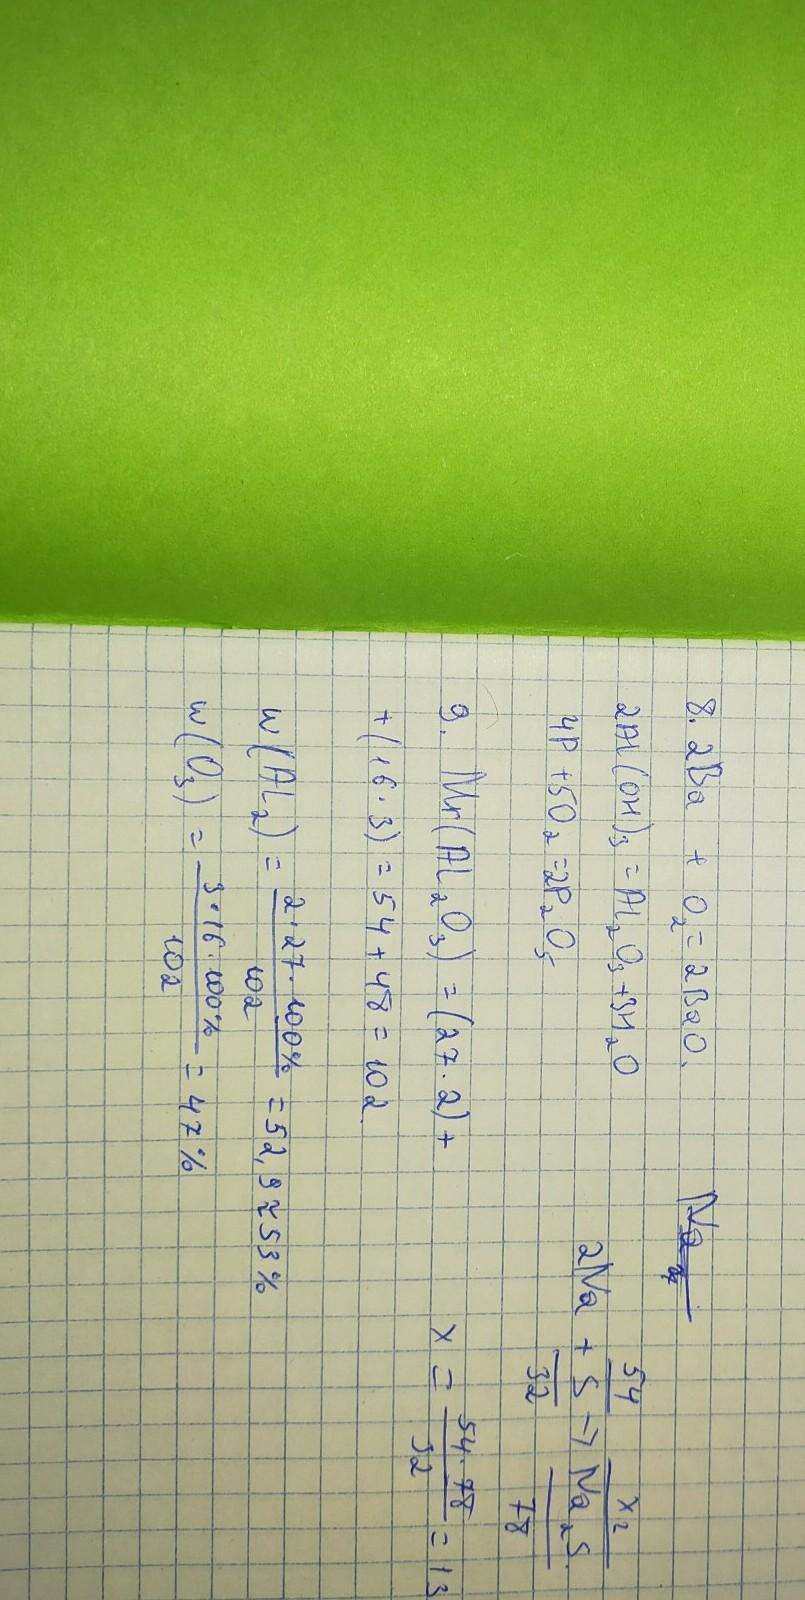 8. 2Ba + O₂ = 2BaO.
2Al(OH)₃ = Al₂O₃ + 3H₂O
4P + 5O₂ = 2P₂O₅
9. Mr(Al₂O₃) = (27·2) +
+ (16·3) = 54 + 48 = 102.
w(Al₂) = 2·27·100% / 102 = 52,9 ≈ 53%
w(O₃) = 3·16·100% / 102 = 47%
Na
54 x г
2Na + S → Na₂S.
32 78
x = 54·78 / 32 = 13